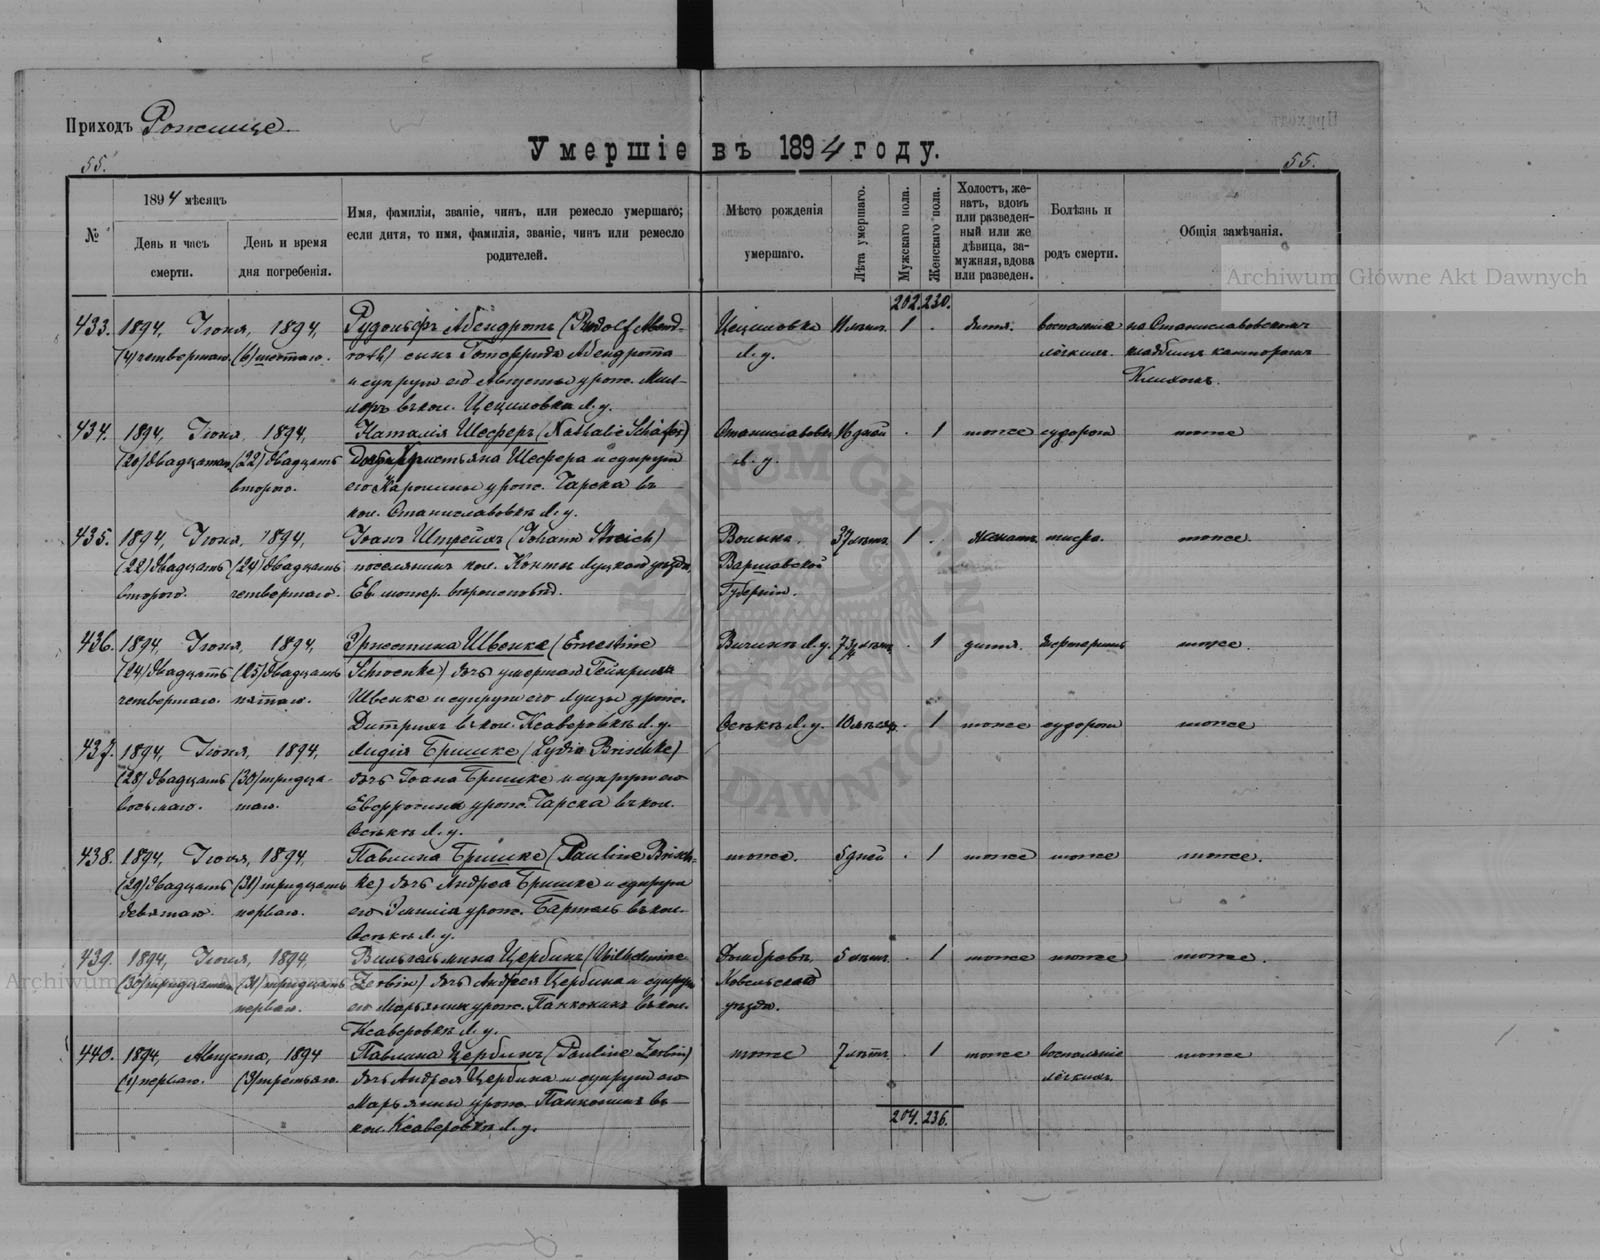 Приходъ Рожище.
Умершіе въ 1894 году.
55.
55.
№
1894 мѣсяцъ
День и часъ смерти.
День и время дня погребенія.
Имя, фамилія, званіе, чинъ, или ремесло умершаго;
если дитя, то имя, фамилія, званіе, чинъ или ремесло
родителей.
Мѣсто рожденія
умершаго.
Лѣта умершаго.
Мужскаго пола.
Женскаго пола.
Холостъ, же-
натъ, вдовъ
или разведен-
ный или же
дѣвица, за-
мужняя, вдова
или разведен.
Болѣзнь и
родъ смерти.
Общія замѣчанія.
202. 230.
433. 1894, Іюня, 1894, Рудольфъ Абендротъ (Rudolf Abend- 11 лѣтъ 1 . дитя. воспаленіе на Станиславовскомъ
(4) четвертаго. (6) шестого. roth) сынъ Готфрида Абендрота Л. у. лёгкихъ. кладбищѣ канторомъ
и супруги его Августы урож. Мил- Клиховъ.
леръ въ кол. Цециловка Л. у.
434. 1894, Іюня, 1894, Наталія Шеферъ (Nathalie Schäfer) Станиславовка 16 дней . 1 тоже судороги тоже
(20) двадцатаго (22) двадцать дочь Христьяна Шефера и супруги Л. у.
второго. его Каролины урож. Царска въ
кол. Станиславовкѣ Л. у.
435. 1894, Іюня, 1894, Іоанъ Штрейхъ (Johann Streich) 37 лѣтъ 1 . женатъ тифъ. тоже.
(22) двадцать (24) двадцать поселянинъ кол. Конты Луцкаго уѣзда, Варшавской
второго. четвертаго. Ев. лютер. вѣроисповѣд. Губерніи.
436. 1894, Іюня, 1894, Эрнестина Швенке (Ernestine Л. у. 7 3/4 лѣтъ . 1 дитя. дифтеритъ тоже.
(24) двадцать (25) двадцать Schwenke) дочь умершаго Гейнриха
четвертаго. пятаго. Швенке и супруги его Луизы урож.
Дитрихъ въ кол. Ксаверовкѣ Л. у. Осѣкѣ Л. у. 10 мѣсяц. . 1 тоже судороги тоже
437. 1894, Іюня, 1894, Лидія Бришке (Lydia Brischke)
(28) двадцать (30) тридца- дочь Іоана Бришке и супруги его
восьмаго. таго. Евфросины урож. Царска въ кол.
Осѣкѣ Л. у.
438. 1894, Іюля, 1894, Павлина Бришке (Pauline Brisch- тоже. 5 дней . 1 тоже тоже тоже.
(29) двадцать (31) тридцать ke) дочь Андрея Бришке и супруги
девятаго. перваго. его Эмиліи урож. Бартель въ кол.
Осѣкѣ Л. у.
439. 1894, Іюля, 1894, Вильгельмина Цербинъ (Wilhelmine 5 лѣтъ . 1 тоже тоже тоже.
(30) тридцатаго (31) тридцать Zerbin) дочь Андрея Цербина и супруги Ковельскаго
перваго. его Марьянны урож. Панконинъ въ кол. уѣзда.
Ксаверовкѣ Л. у.
440. 1894, Августа, 1894 Павлина Цербинъ (Pauline Zerbin) тоже 7 лѣтъ . 1 тоже воспаленіе тоже
(1) перваго. (3) третьяго. дочь Андрея Цербина и супруги его лёгкихъ.
Марьянны урож. Панконинъ въ
кол. Ксаверовкѣ Л. у.
204. 236.
Archiwum Główne Akt Dawnych
Archiwum Główne Akt Dawnych
ARCHIWUM GŁÓWNE AKT DAWNYCH